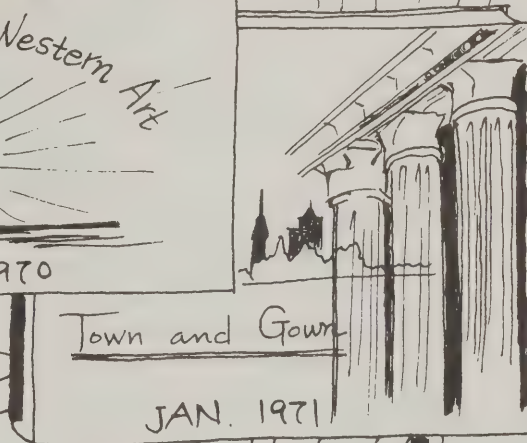 Western Art
970
Town and Gown
JAN. 1971